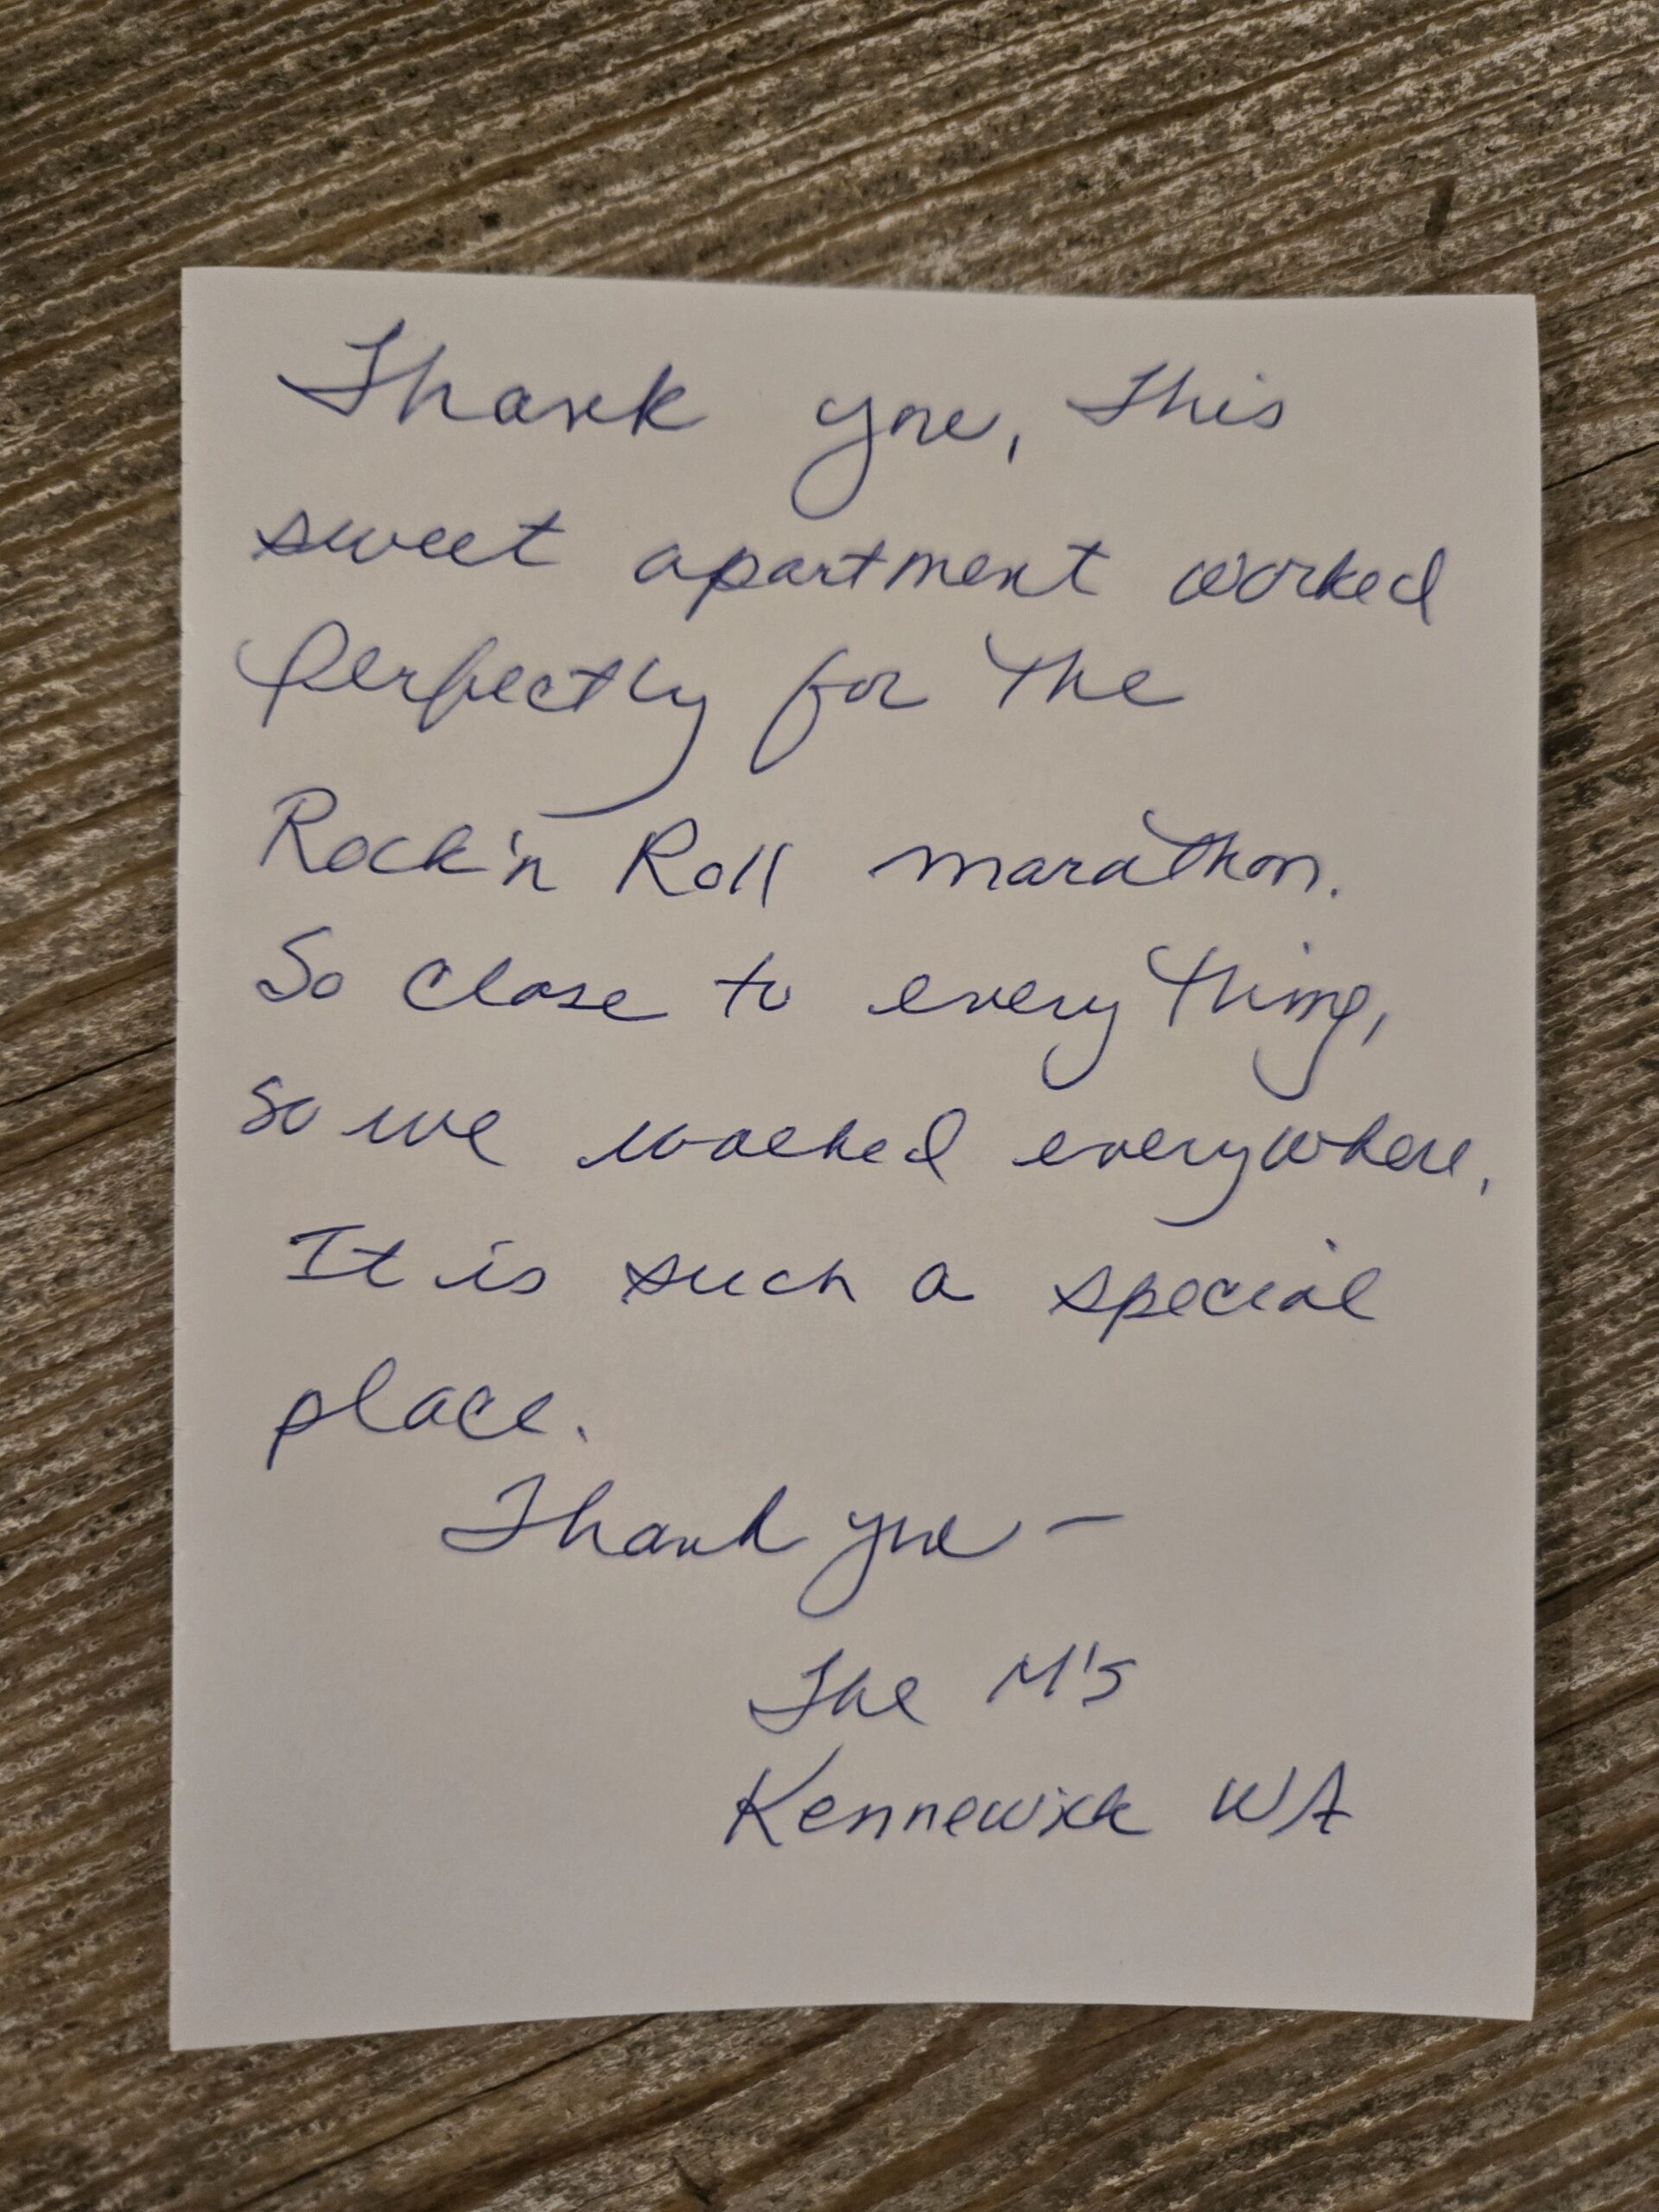 Thank you, this
sweet apartment worked
perfectly for the
Rock'n Roll marathon.
So close to everything,
so we walked everywhere.
It is such a special
place.
Thank you —
The M's
Kennewick WA